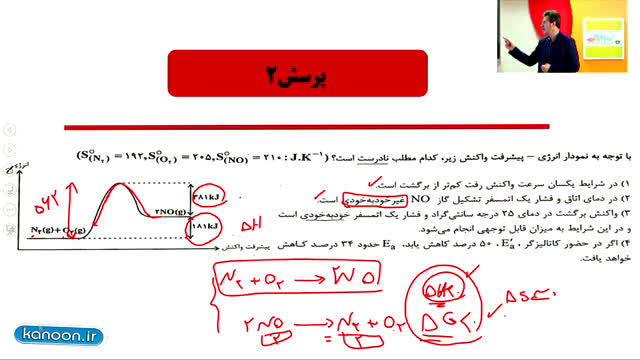 پرسش۲
با توجه به نمودار انرژی – پیشرفت واکنش زیر، کدام مطلب نادرست است؟ (S°(N۲) = ۱۹۲, S°(O۲) = ۲۰۵, S°(NO) = ۲۱۰ : J.K⁻¹)
۱) در شرایط یکسان سرعت واکنش رفت کم‌تر از برگشت است.
۲) در دمای اتاق و فشار یک اتمسفر تشکیل گاز NO غیرخودبه‌خودی است.
۳) واکنش برگشت در دمای ۲۵ درجه سانتی‌گراد و فشار یک اتمسفر خودبه‌خودی است
و در این شرایط به میزان قابل توجهی انجام می‌شود.
۴) اگر در حضور کاتالیزگر، E'a ۵۰ درصد کاهش یابد، Ea حدود ۳۴ درصد کاهش
خواهد یافت.
انرژی
۳۸۱kJ
۲NO(g)
۱۸۱kJ
ΔH
N۲(g)+O۲(g)
پیشرفت واکنش
N۲ + O۲ → ۲NO
۲NO → N۲ + O۲
۲ = ۲
ΔH<۰
ΔG<۰
kanoon.ir